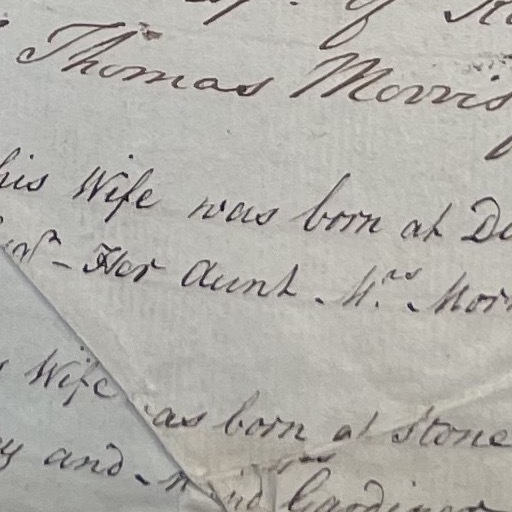 of
Thomas Morris
his Wife was born at
Her Aunt Mrs.
Wife was born at Stone
and Gardiner